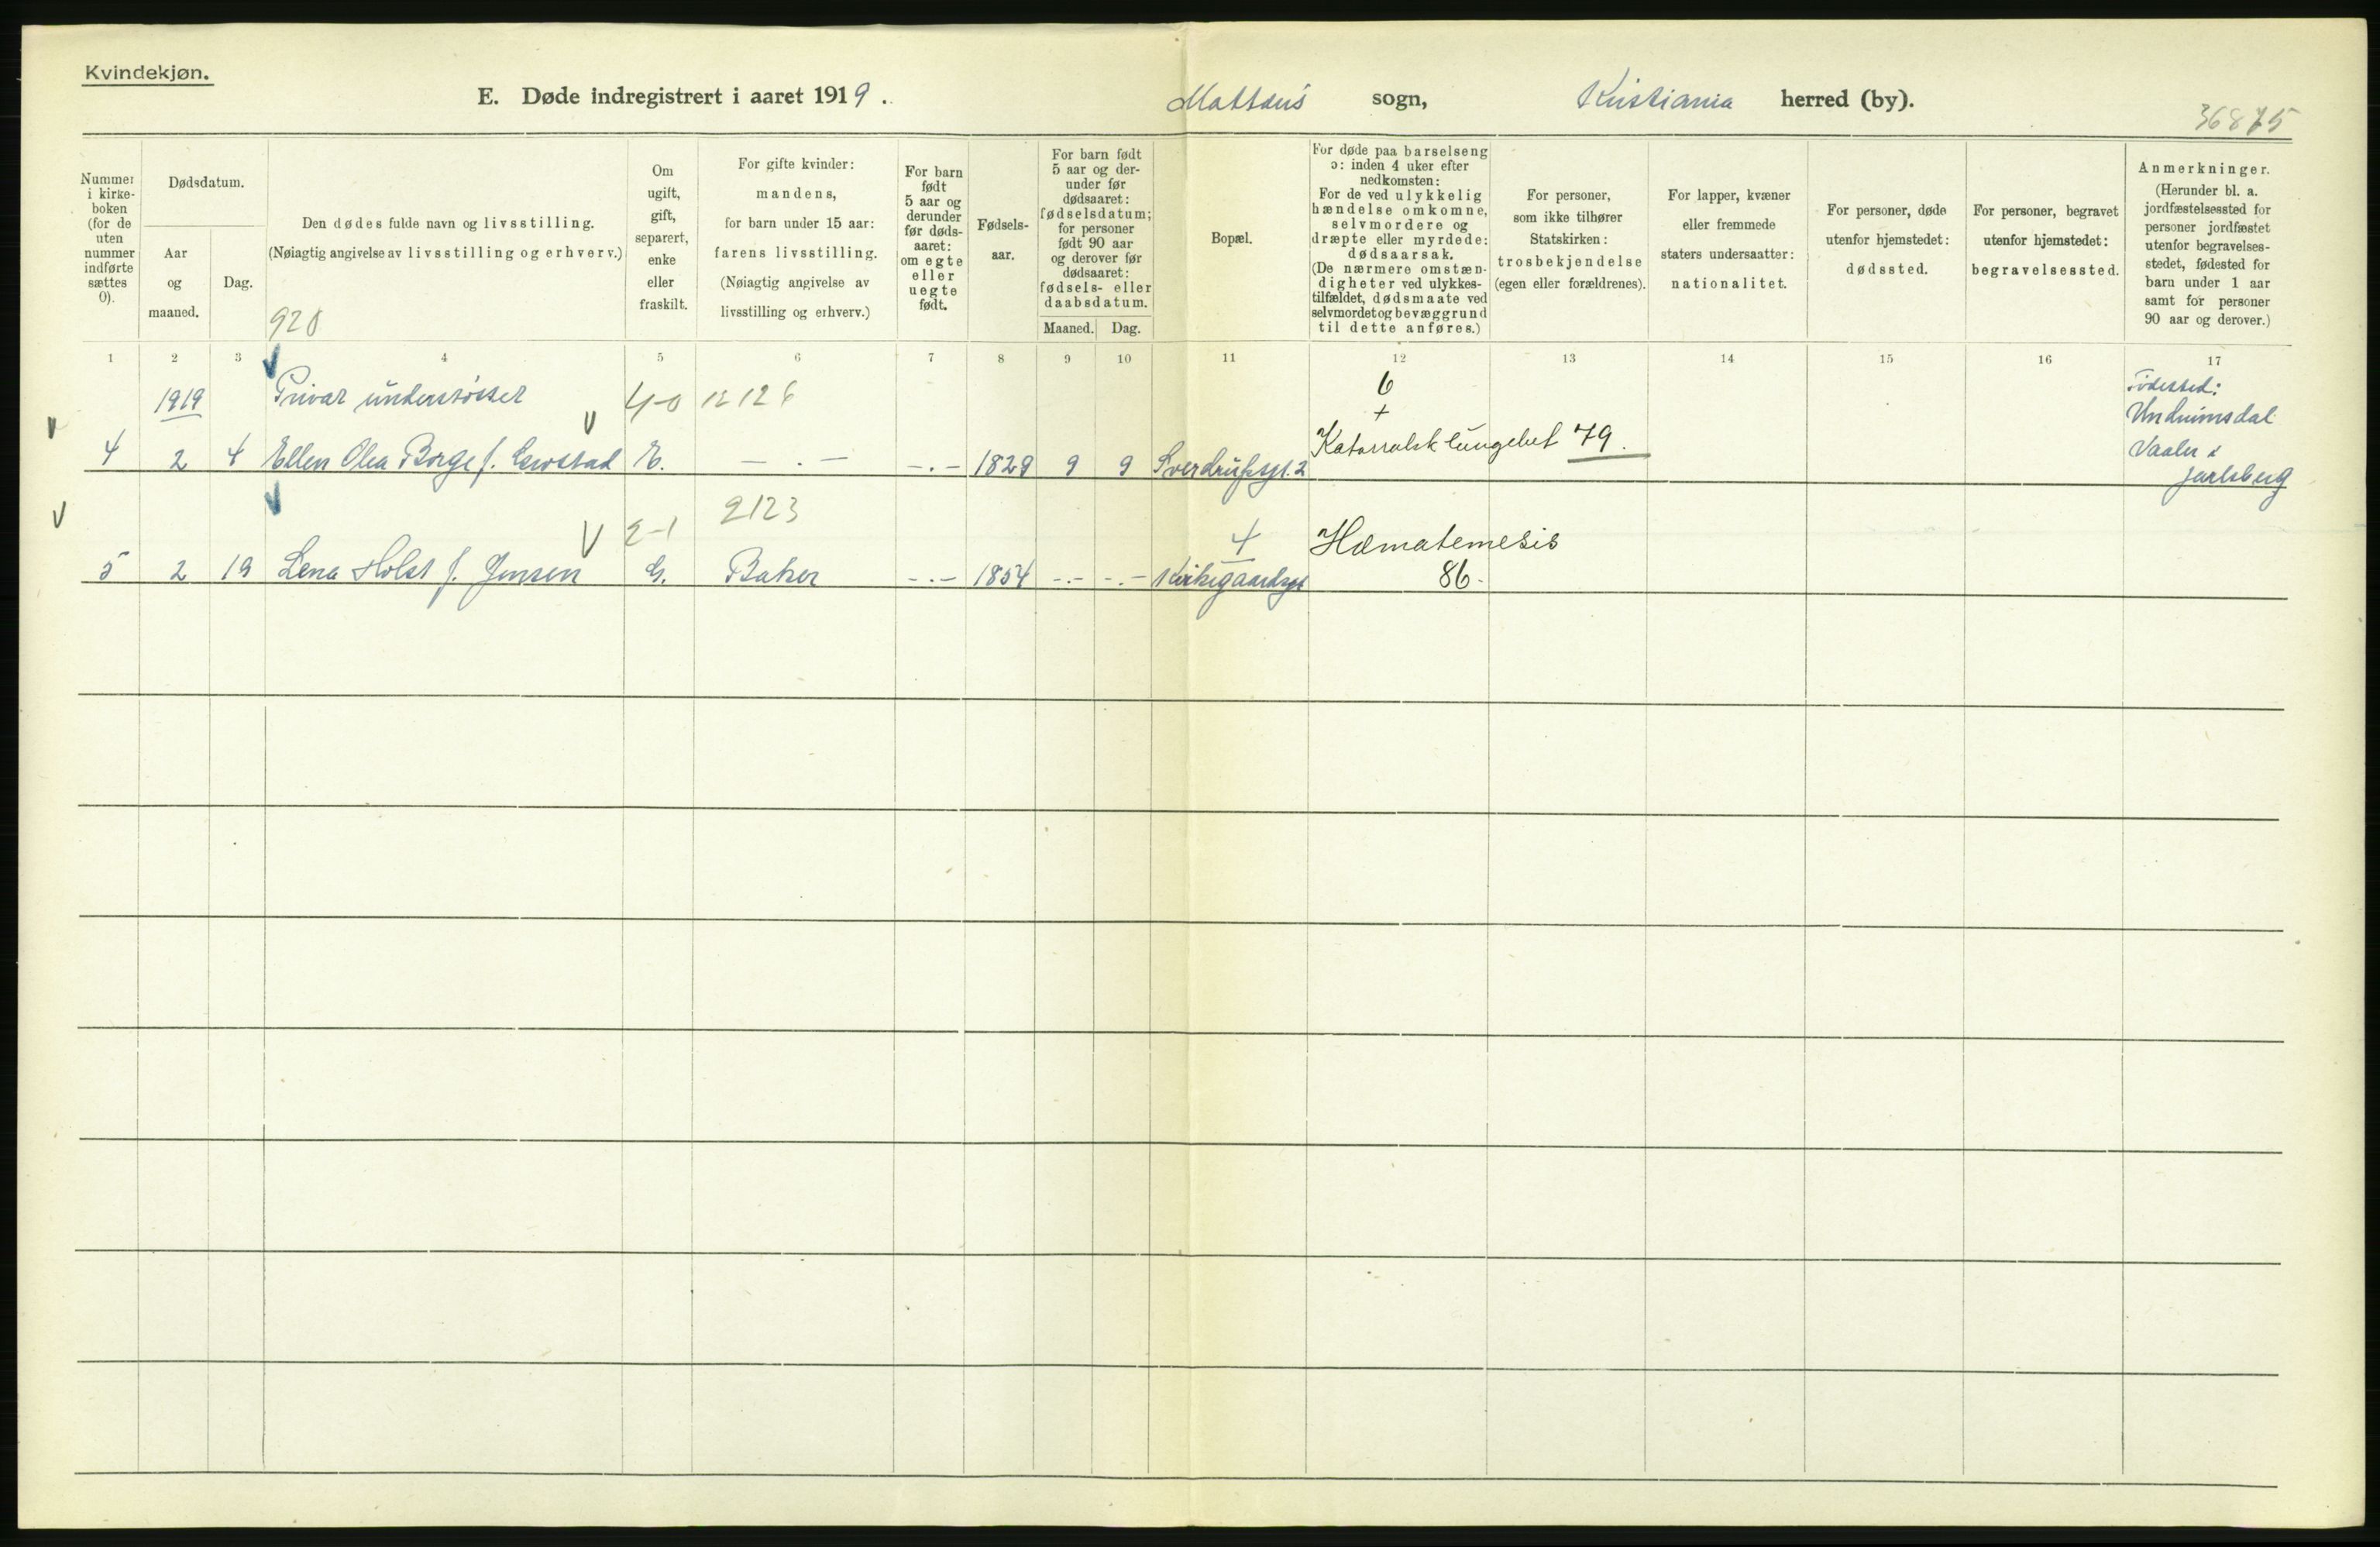 Kvindekjøn.
E. Døde indregistrert i aaret 1919.
Mattæus sogn, Kristiania herred (by).
36875
Nummer i kirkeboken (for de uten nummer indførte sættes 0).
Dødsdatum.
Aar og maaned.
Dag.
Den dødes fulde navn og livsstilling.
(Nøiagtig angivelse av livsstilling og erhverv.)
920
Om ugift, gift, separert, enke eller fraskilt.
For gifte kvinder:
mandens,
for barn under 15 aar:
farens livsstilling.
(Nøiagtig angivelse av
livsstilling og erhverv.)
For barn født 5 aar og derunder før dødsaaret: om egte eller uegte født.
Fødselsaar.
For barn født 5 aar og derunder før dødsaaret: fødselsdatum; for personer født 90 aar og derover før dødsaaret: fødsels- eller daabsdatum.
Maaned. Dag.
Bopæl.
For døde paa barselseng
ɔ: inden 4 uker efter
nedkomsten:
For de ved ulykkelig
hændelse omkomne,
selvmordere og
dræpte eller myrdede:
dødsaarsak.
(De nærmere omstæn-
digheter ved ulykkes-
tilfældet, dødsmaate ved
selvmordet og bevæggrund
til dette anføres.)
For personer,
som ikke tilhører
Statskirken:
trosbekjendelse
(egen eller forældrenes).
For lapper, kvæner
eller fremmede
staters undersaatter:
nationalitet.
For personer, døde
utenfor hjemstedet:
dødssted.
For personer, begravet
utenfor hjemstedet:
begravelsessted.
Anmerkninger.
(Herunder bl. a.
jordfæstelsessted for
personer jordfæstet
utenfor begravelses-
stedet, fødested for
barn under 1 aar
samt for personer
90 aar og derover.)
1 2 3 4 5 6 7 8 9 10 11 12 13 14 15 16 17
1919 Privat understøttet 4-0 12126 6 Födested:
+
4 2 4 Ellen Olea Borge f. E. — . — -.- 1829 9 9 Sverdrupsgt. 2 Katarralsk lungebet 79.
Vaaler i
Jarlsberg
2-1 2123
5 2 19 Lena Holst f. Jensen G. Baker -.- 1854 -.- -.- Kirkegaardsgt 4 Hæmatemesis
86.